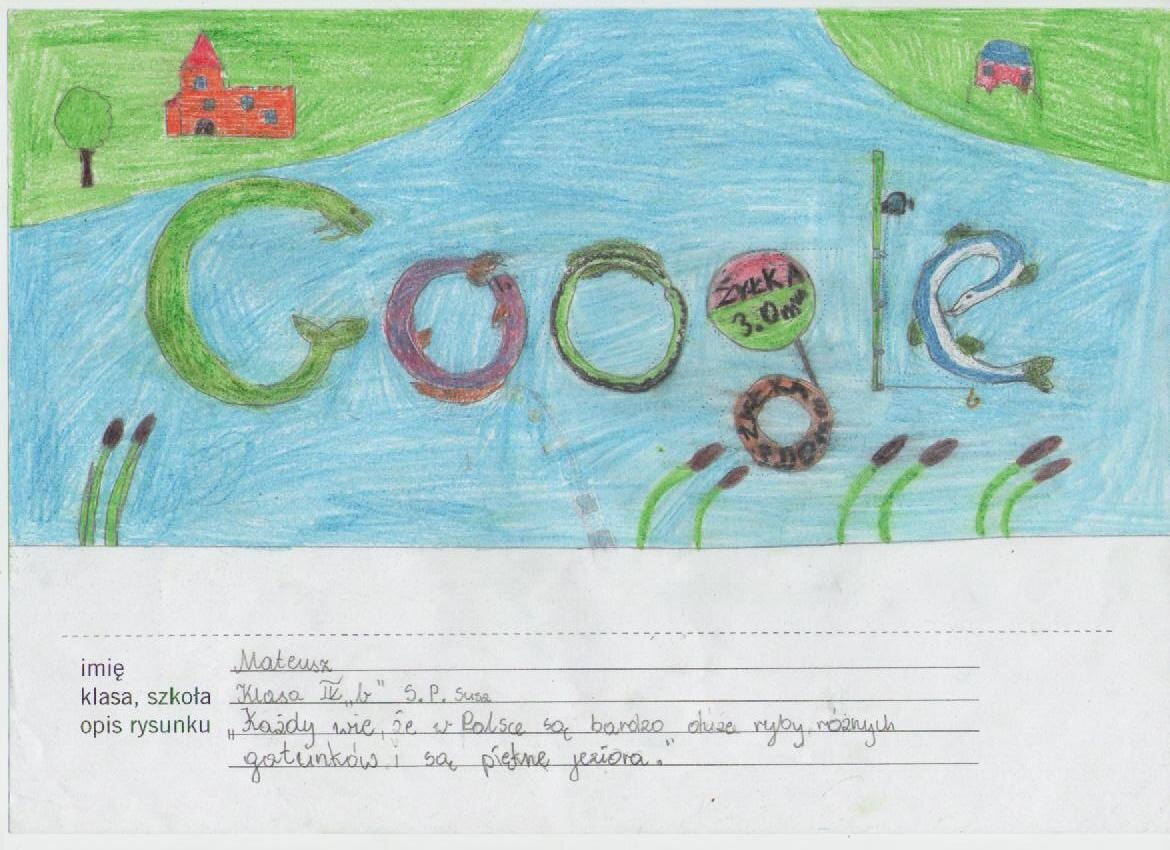 Google
ŻYŁKA
3.0mm
imię Mateusz
klasa, szkoła Klasa IV „b" S.P. Susz
opis rysunku „Każdy wie, że w Polsce są bardzo duże ryby różnych
gatunków i są piękne jeziora."